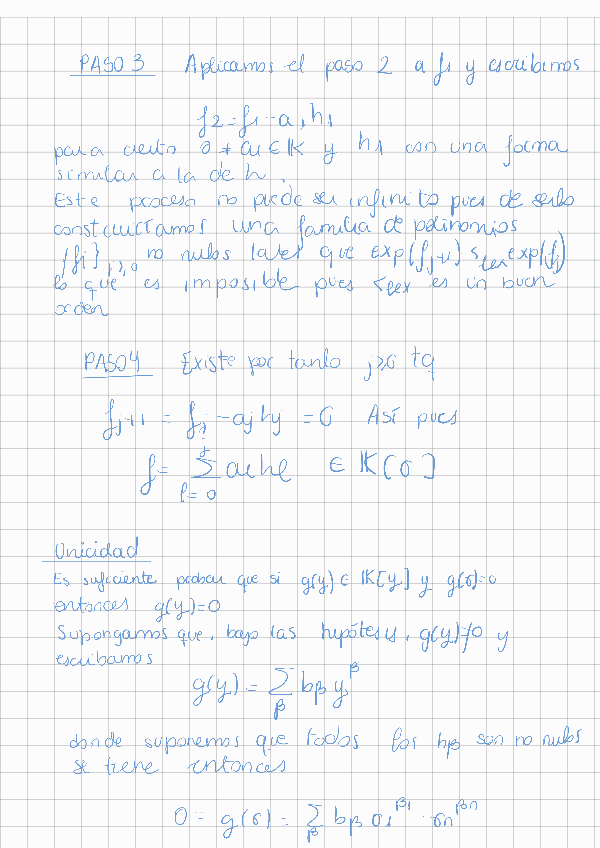 PASO 3 Aplicamos el paso 2 a f₁ y escribimos
f₂ = f₁ - a₁h₁
para cierto 0 ≠ a₁ ∈ 𝕂 y h₁ con una forma
similar a la de h.
Este proceso no puede ser infinito pues de serlo
construiríamos una familia de polinomios
{fⱼ}ⱼ≥₀ no nulos tales que exp(fⱼ₊₁) <lex exp(fⱼ)
lo que es imposible pues <lex es un buen
orden
PASO 4 Existe por tanto j≥0 tq
fⱼ₊₁ = fⱼ - aⱼhⱼ = 0 Así pues
f = ∑_{l=0}^{j} aₗhₗ ∈ 𝕂[σ]
Unicidad
Es suficiente probar que si g(y) ∈ 𝕂[y] y g(σ)=0
entonces g(y)=0
Supongamos que, bajo las hipótesis, g(y)≠0 y
escribamos
g(y) = ∑_β b_β y^β
donde suponemos que todos los b_β son no nulos
se tiene entonces
0 = g(σ) = ∑_β b_β σ₁^{β₁} ... σₙ^{βₙ}